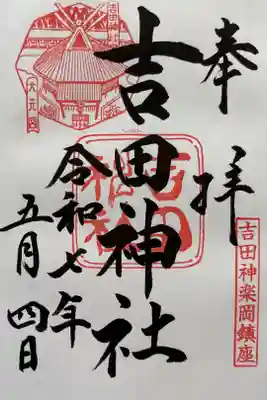 奉拝
吉田神楽岡鎮座
吉田神社
吉田神社
令和七年
五月四日
大元宮